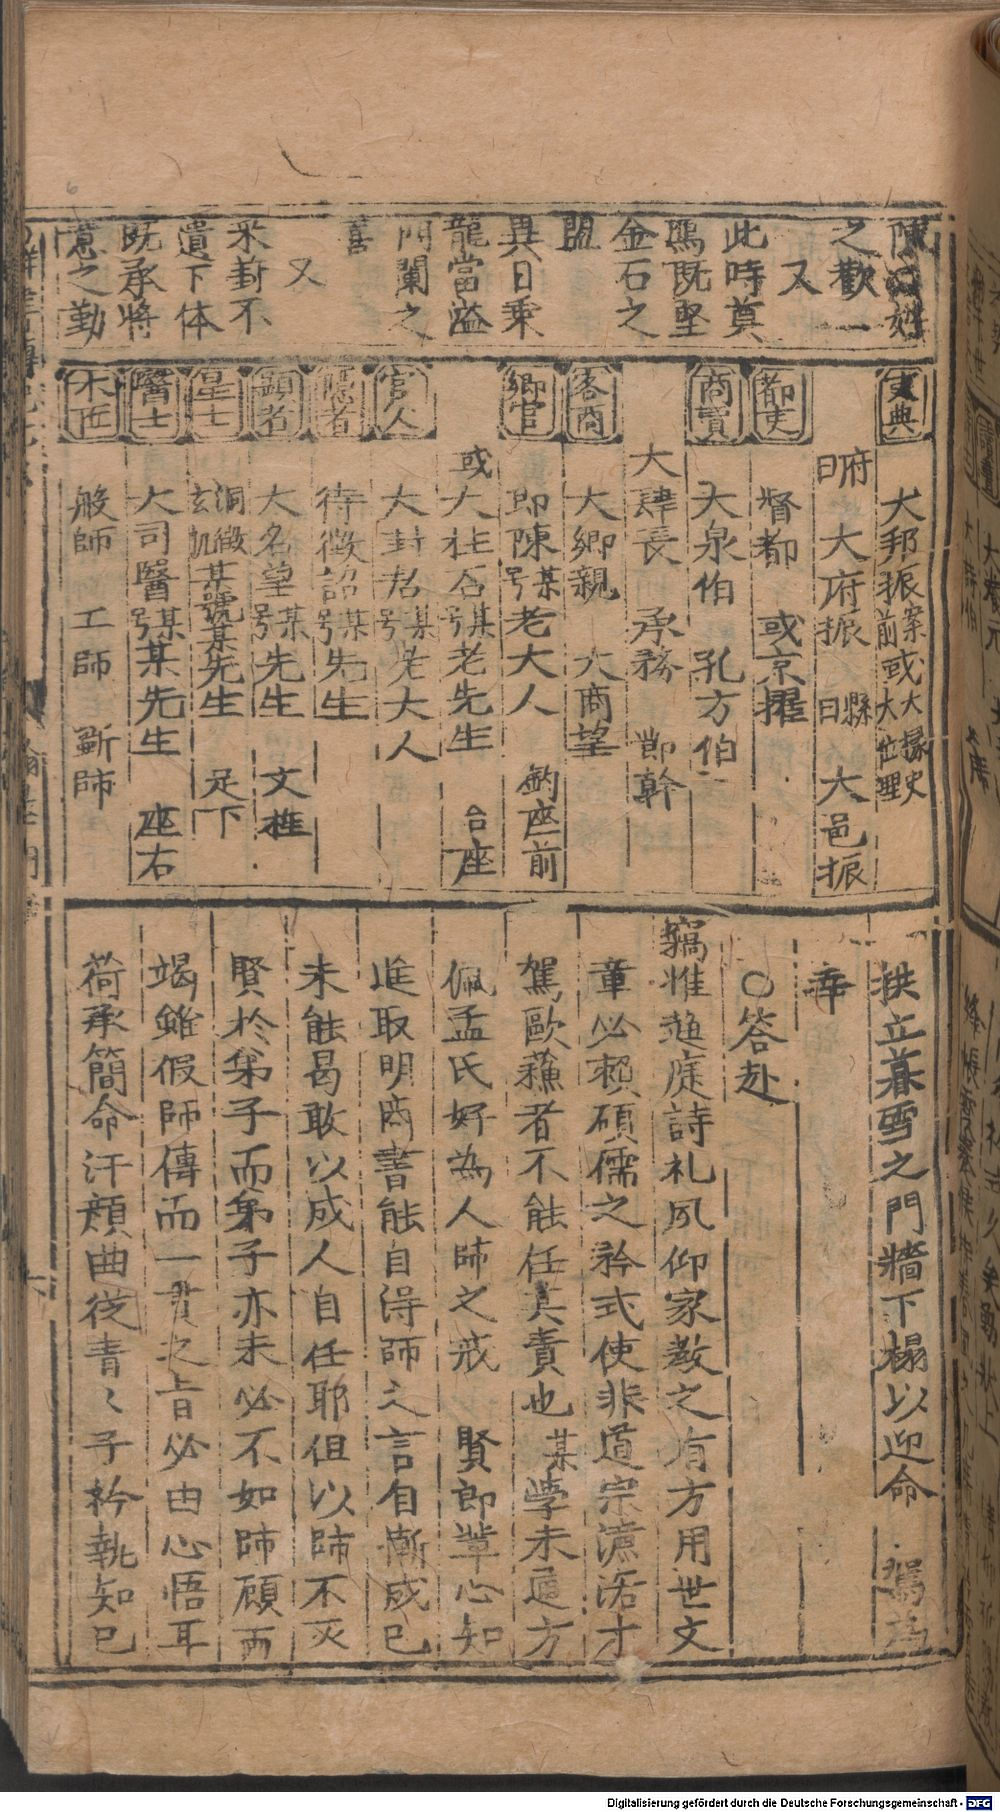 之歡
又
此時莫
鴈既堅
金石之
盟
異日乘
龍當溢
門闌之
喜
又
采葑不
遺下体
既承將
意之勤
吏典
大邦振案前或大掾史大位理
府曰大府振 縣曰 大邑振
都吏
督都 或京擢
商賈
大泉伯 孔方伯
大肆長 承務 節幹
客商
大鄉親 大商望
鄉官
即陳某号老大人 鈞座前
或大柱石某号老先生 台座
官人
大封君某号老大人
隱者
待徵詔某号先生
顯者
大名望某号先生 文柱
星士
洞徹玄机某號某先生 足下
醫士
大司醫某号某先生 座右
木匠
般師 工師 斲師
拱立暮雪之門牆下榻以迎命 駕為
幸
○答赴
竊惟趨庭詩礼夙仰家教之有方用世文
章必賴碩儒之矜式使非道宗濂洛才
駕歐蘇者不能任其責也某學未通方
佩孟氏好為人師之戒 賢郎輩心知
進取明商書能自得師之言自慚成已
未能曷敢以成人自任耶但以師不灭
賢於弟子而弟子亦未必不如師顧而
竭雖假師傳而一貫之旨必由心悟耳
荷承簡命汗顏曲從青〻子衿執知已